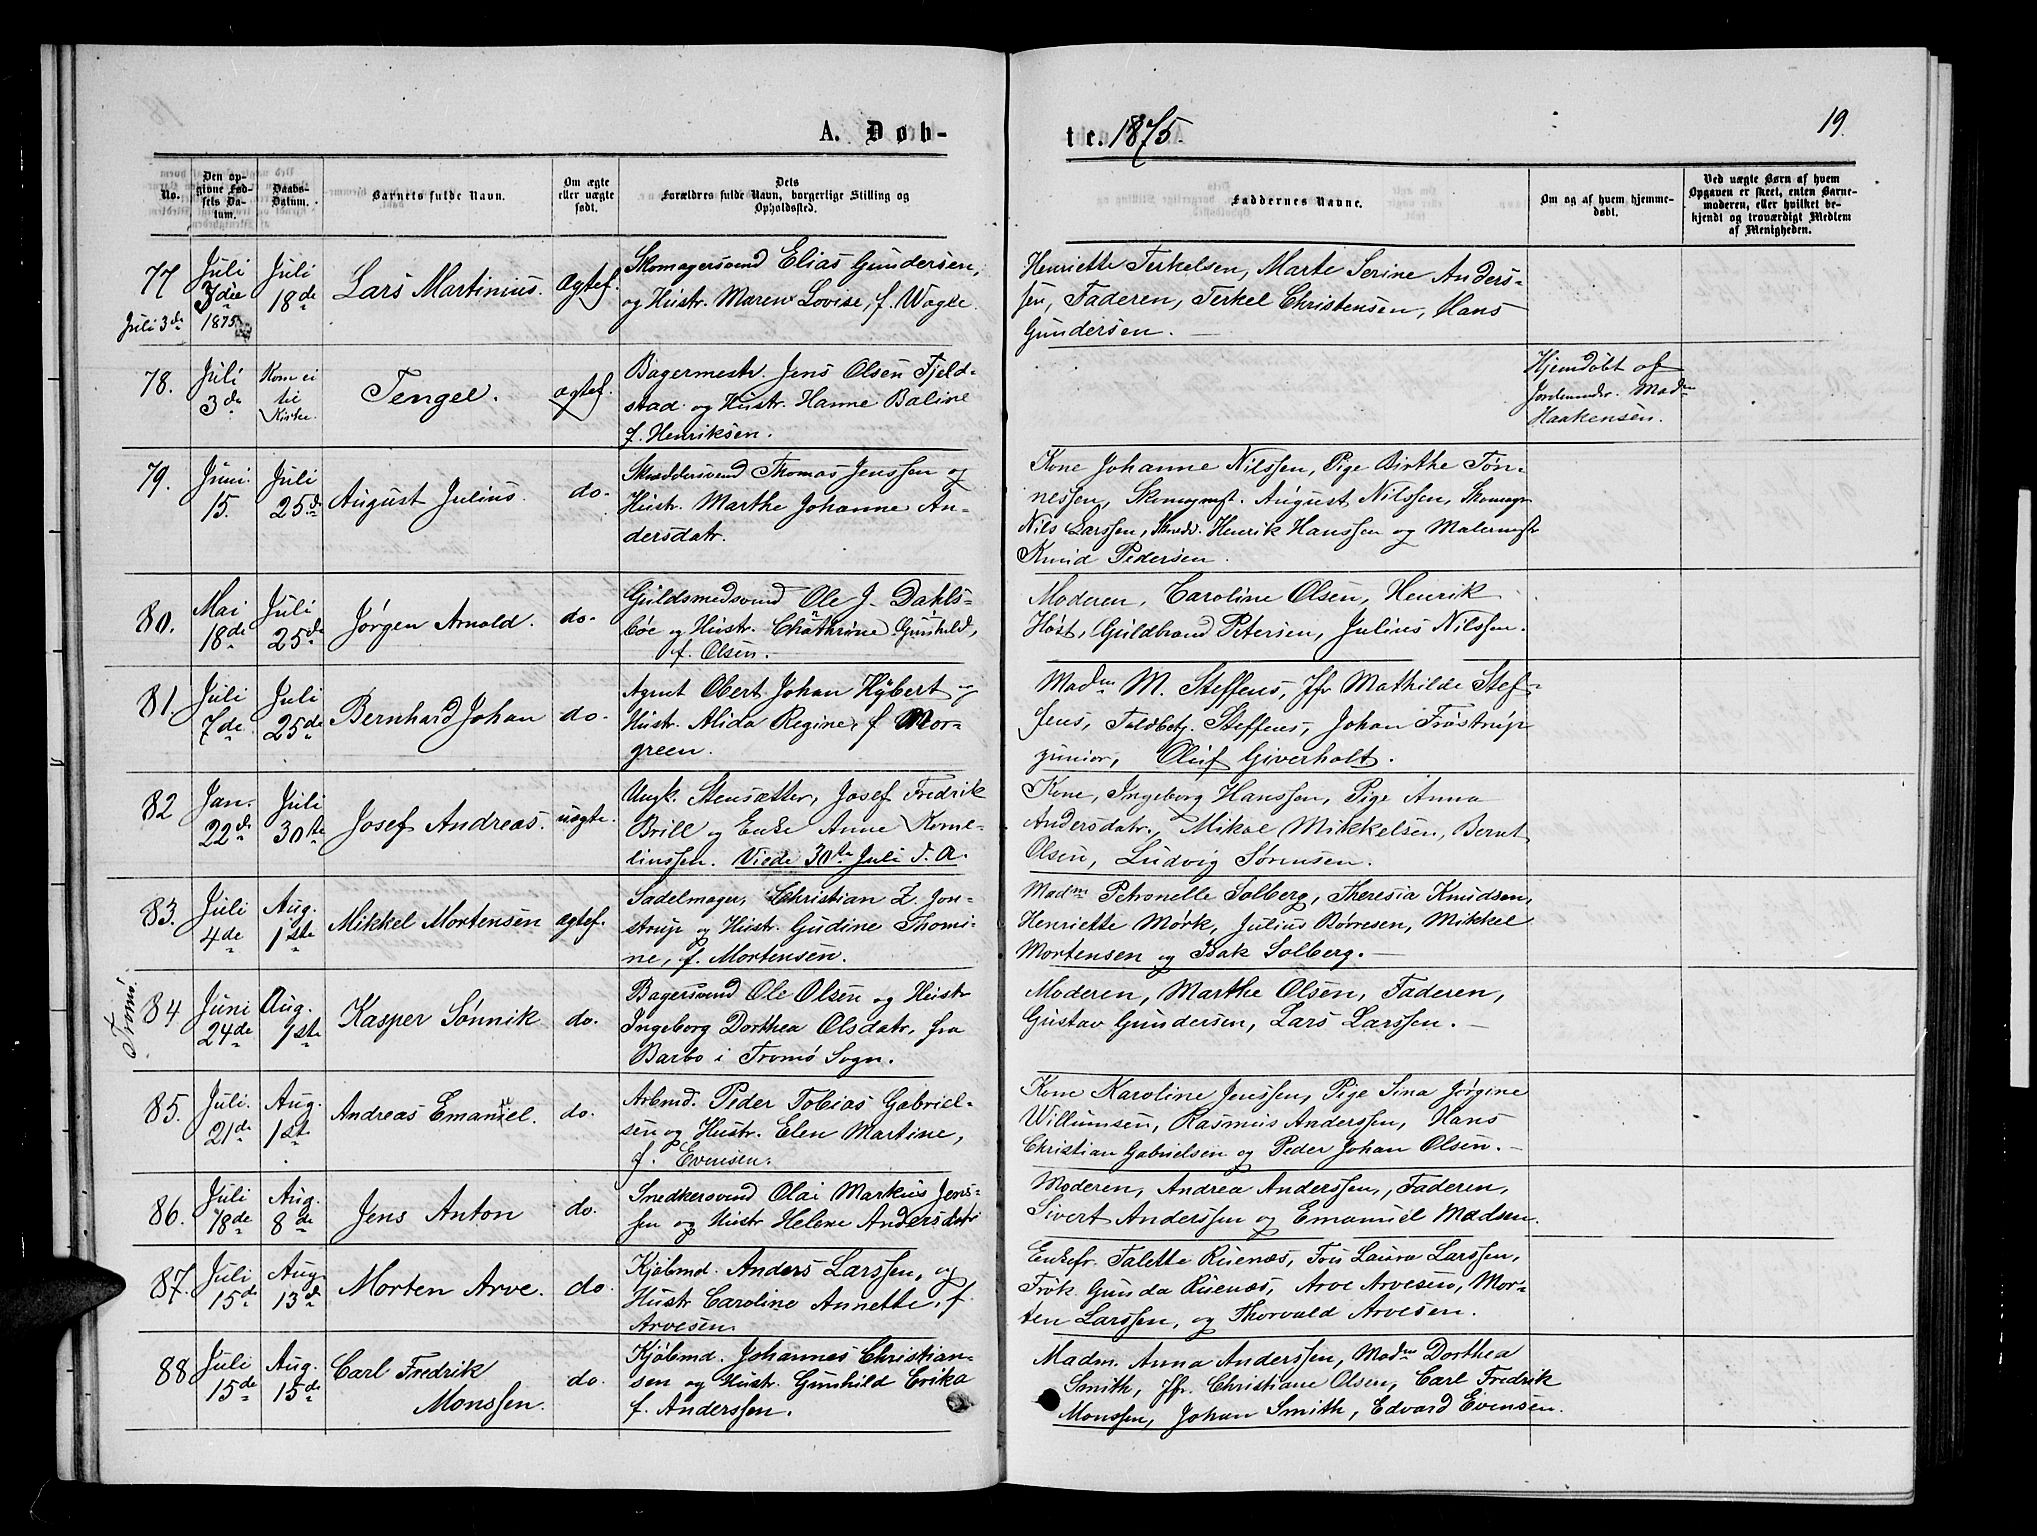 19.
A. Døb-
te. 1875.
No.
Den op-
givne Fød-
sels Da-
tum.
Daabs-
Datum.
Barnets fulde Navn.
Om ægte
eller uægte
født.
Dets
Forældres fulde Navn, borgerlige Stilling og
Opholdssted.
Faddernes Navne.
Om og af hvem hjemme-
døbt.
Ved uægte Børn af hvem
Opgaven er skeet, enten Barne-
moderen, eller hvilket be-
kjendt og troværdigt Medlem
af Menigheden.
77
Juli 3de
Juli
3die
1875
Juli
18de
Lars Martinius.
Ægtef.
Skomagersvend Elias Gundersen,
og Hustr. Maren Lovise, f. Wagle.
Henriette Terkelsen, Marte Serine Anders-
sen, Faderen, Terkel Christensen, Hans
Gundersen.
78.
Juli
3de
Kom ei
til
Kirke.
Tengel.
ægtef.
Bagermestr. Jens Olsen Fjeld-
stad og Hustr. Hanne Baline
f. Henriksen.
Hjemdøbt af
Jordemodr. Madm
Haakensen.
79.
Juni
15.
Juli
25de
August Julius.
do.
Skræddersvend Thomas Jenssen og
Hustr. Marthe Johanne An-
dersdatr.
Kone Johanne Nilssen, Pige Birthe Tøn-
nessen, Skomagrsv. August Nilssen, Skomagr
Nils Larssen, Skrædd. Henrik Hanssen og Malermstr
Knud Pedersen.
80.
Mai
18de
Juli
25de
Jørgen Arnold.
do.
Guldsmedsvend Ole J. Dahls-
bøe og Hustr. Chathrine Gunhild,
f. Olsen.
Moderen, Caroline Olsen, Henrik
Høst, Guldbrand Petersen, Julius Nilssen.
81.
Juli
7de
Juli
25de
Bernhard Johan
do.
Agent Obert Johan Hybert og
Hustr. Alida Regine, f. Mor-
green.
Madm M. Steffens, Jfr Mathilde Stef-
fens, Toldbetj. Steffens, Johan Frøstrup
junior, Oluf Giverholt.
82
Jan.
22de
Juli
30te
Josef Andreas.
uægte.
Ungk. Stensætter, Josef Fredrik
Brill og Enke Anne Korne-
linssen. Viede 30te Juli d. A.
Kone, Ingeborg Hanssen, Pige Anna
Andersdatr., Mikal Mikkelsen, Bernt
Olsen, Ludvig Sørensen.
83.
Juli
4de
Aug.
1ste
Mikkel Mortensen
ægtef.
Sadelmager, Christian Z. Jon-
strup og Hustr. Gudine Thomi-
ne, f. Mortensen.
Madm Petronelle Solberg, Theresia Knudsen,
Henriette Mørk, Julius Børresen, Mikkel
Mortensen og Isak Solberg.
Tromø.
84
Juni
24de
Aug.
1ste
Kasper Sønnik
do.
Bagersvend Ole Olsen og Hustr
Ingeborg Dorthea Olsdatr, fra
Barbo i Tromø Sogn.
Moderen, Marthe Olsen, Faderen,
Gustav Gundersen, Lars Larssen.
85.
Juli.
21de
Aug.
1st
Andreas Emanuel.
do.
Arbmd. Peder Tobias Gabriel-
sen og Hustr. Elen Martine,
f. Evensen.
Kone Karoline Jenssen, Pige Sina Jørgine
Willumsen, Rasmus Anderssen, Hans
Christian Gabrielsen og Peder Johan Olsen.
86.
Juli
18de
Aug.
8de
Jens Anton
do.
Snedkersvend Olai Markus Jens-
sen og Hustr Helene Andersdatr
Moderen, Andrea Anderssen, Faderen,
Sivert Anderssen og Emanuel Madsen.
87.
Juli
15de
Aug
13de
Morten Arve.
do.
Kjøbmd. Anders Larssen, og
Hustr Caroline Annette, f.
Arvesen.
Enkefr. Talette Ruenæs, Frú Laura Larssen,
Frøk. Gunda Ruenæs, Arve Arvesen, Mor-
ten Larssen, og Thorvald Arvesen.
88
Juli
15de
Aug.
15de
Carl Fredrik
Monssen.
do.
Kjøbmd. Johannes Christian-
sen og Hustr. Gunhild Erika
f. Anderssen.
Madm. Anna Anderssen, Madm Dorthea
Smith, Jfr. Christiane Olsen, Carl Fredrik
Monssen, Johan Smith, Edvard Evensen.